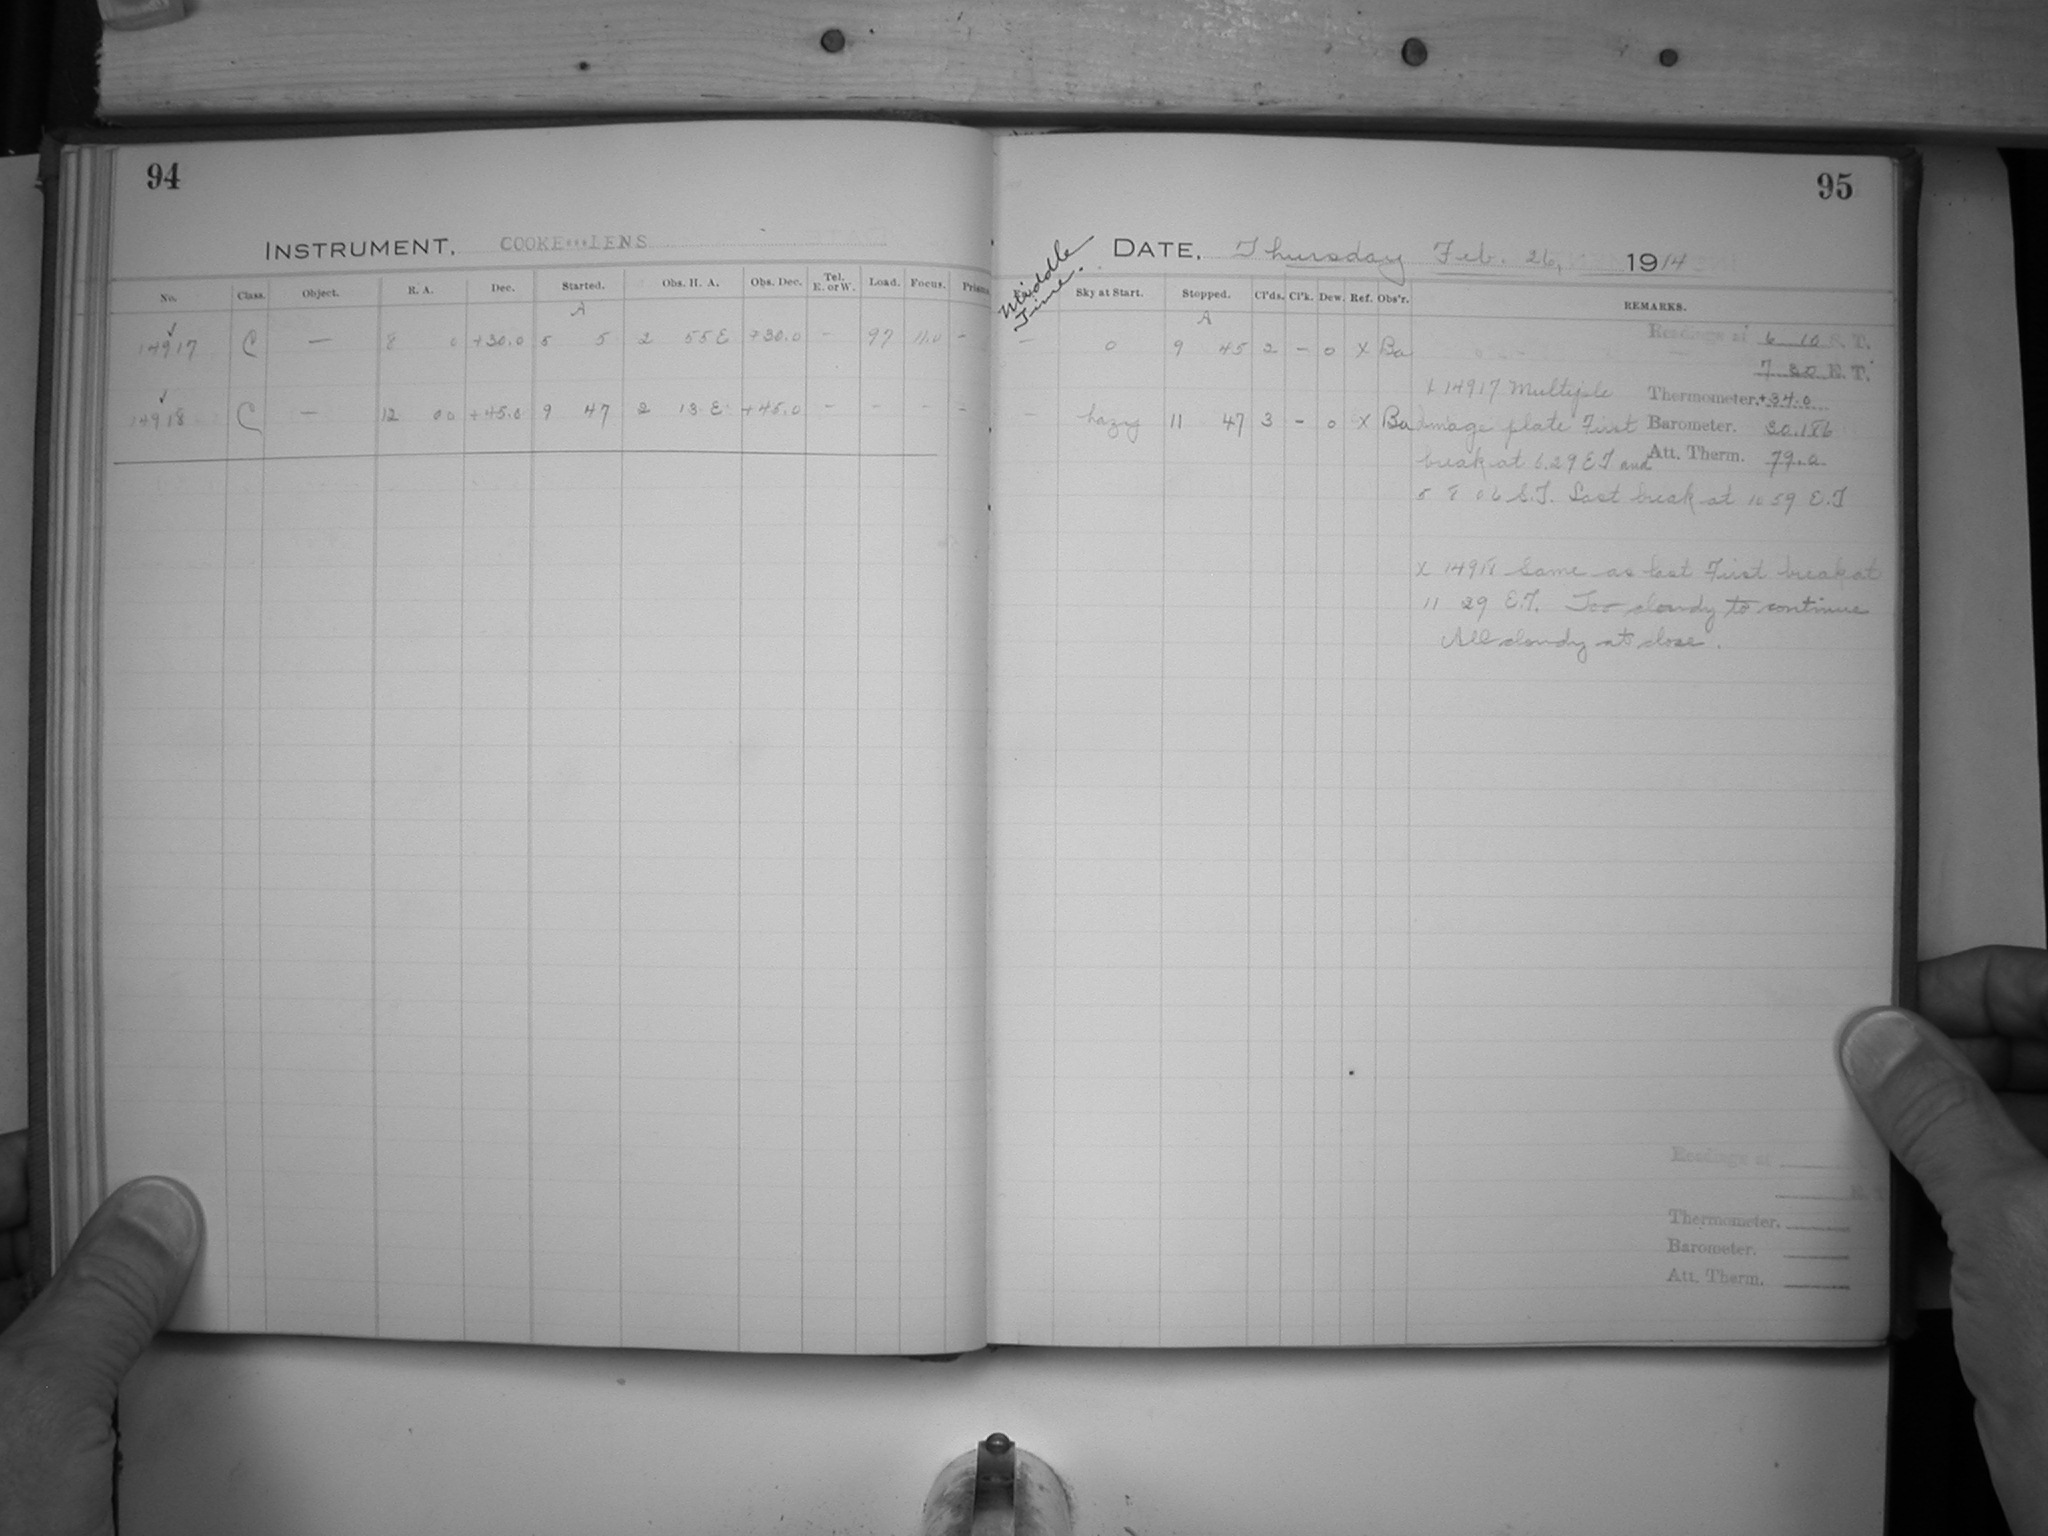 94
INSTRUMENT, COOKE LENS
No. Class. Object. R. A. Dec. Started. Obs. H. A. Obs. Dec. Tel. E. or W. Load. Focus. Prisms
A
14917 C — 8 0 +30.0 5 5 2 55 E +30.0 — 97 11.0 —
14918 C — 12 00 +45.0 9 47 2 13 E +45.0 — — — —
95
DATE, Thursday Feb. 26, 1914
Middle Time.
Sky at Start. Stopped. Cl'ds. Cl'k. Dew. Ref. Obs'r. REMARKS.
A
— 0 9 45 2 — 0 X Ba
— hazy 11 47 3 — 0 X Ba
Readings at 6 10 S. T.
7 30 E. T.
Thermometer. +34.0
Barometer. 30.186
Att. Therm. 79.0
X 14917 Multiple
image plate First
break at 6.29 E T and
5 8 06 S.T. Last break at 10 59 E.T
X 14918 Same as last First break at
11 29 E.T. Too cloudy to continue
All cloudy at close.
Readings at
E. T.
Thermometer.
Barometer.
Att. Therm.